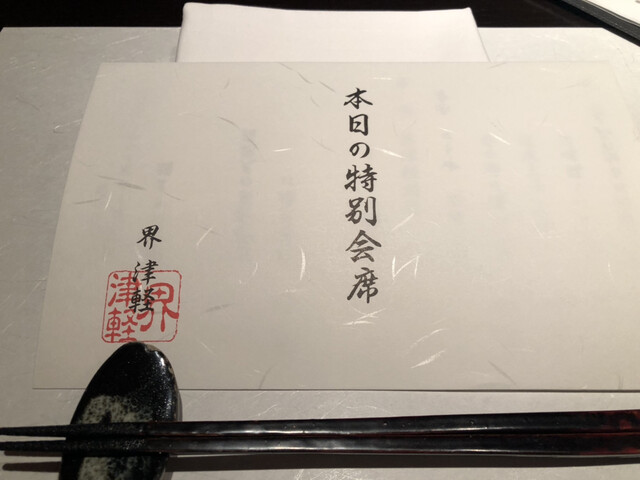 本日の特別会席
界 津軽
界
津軽